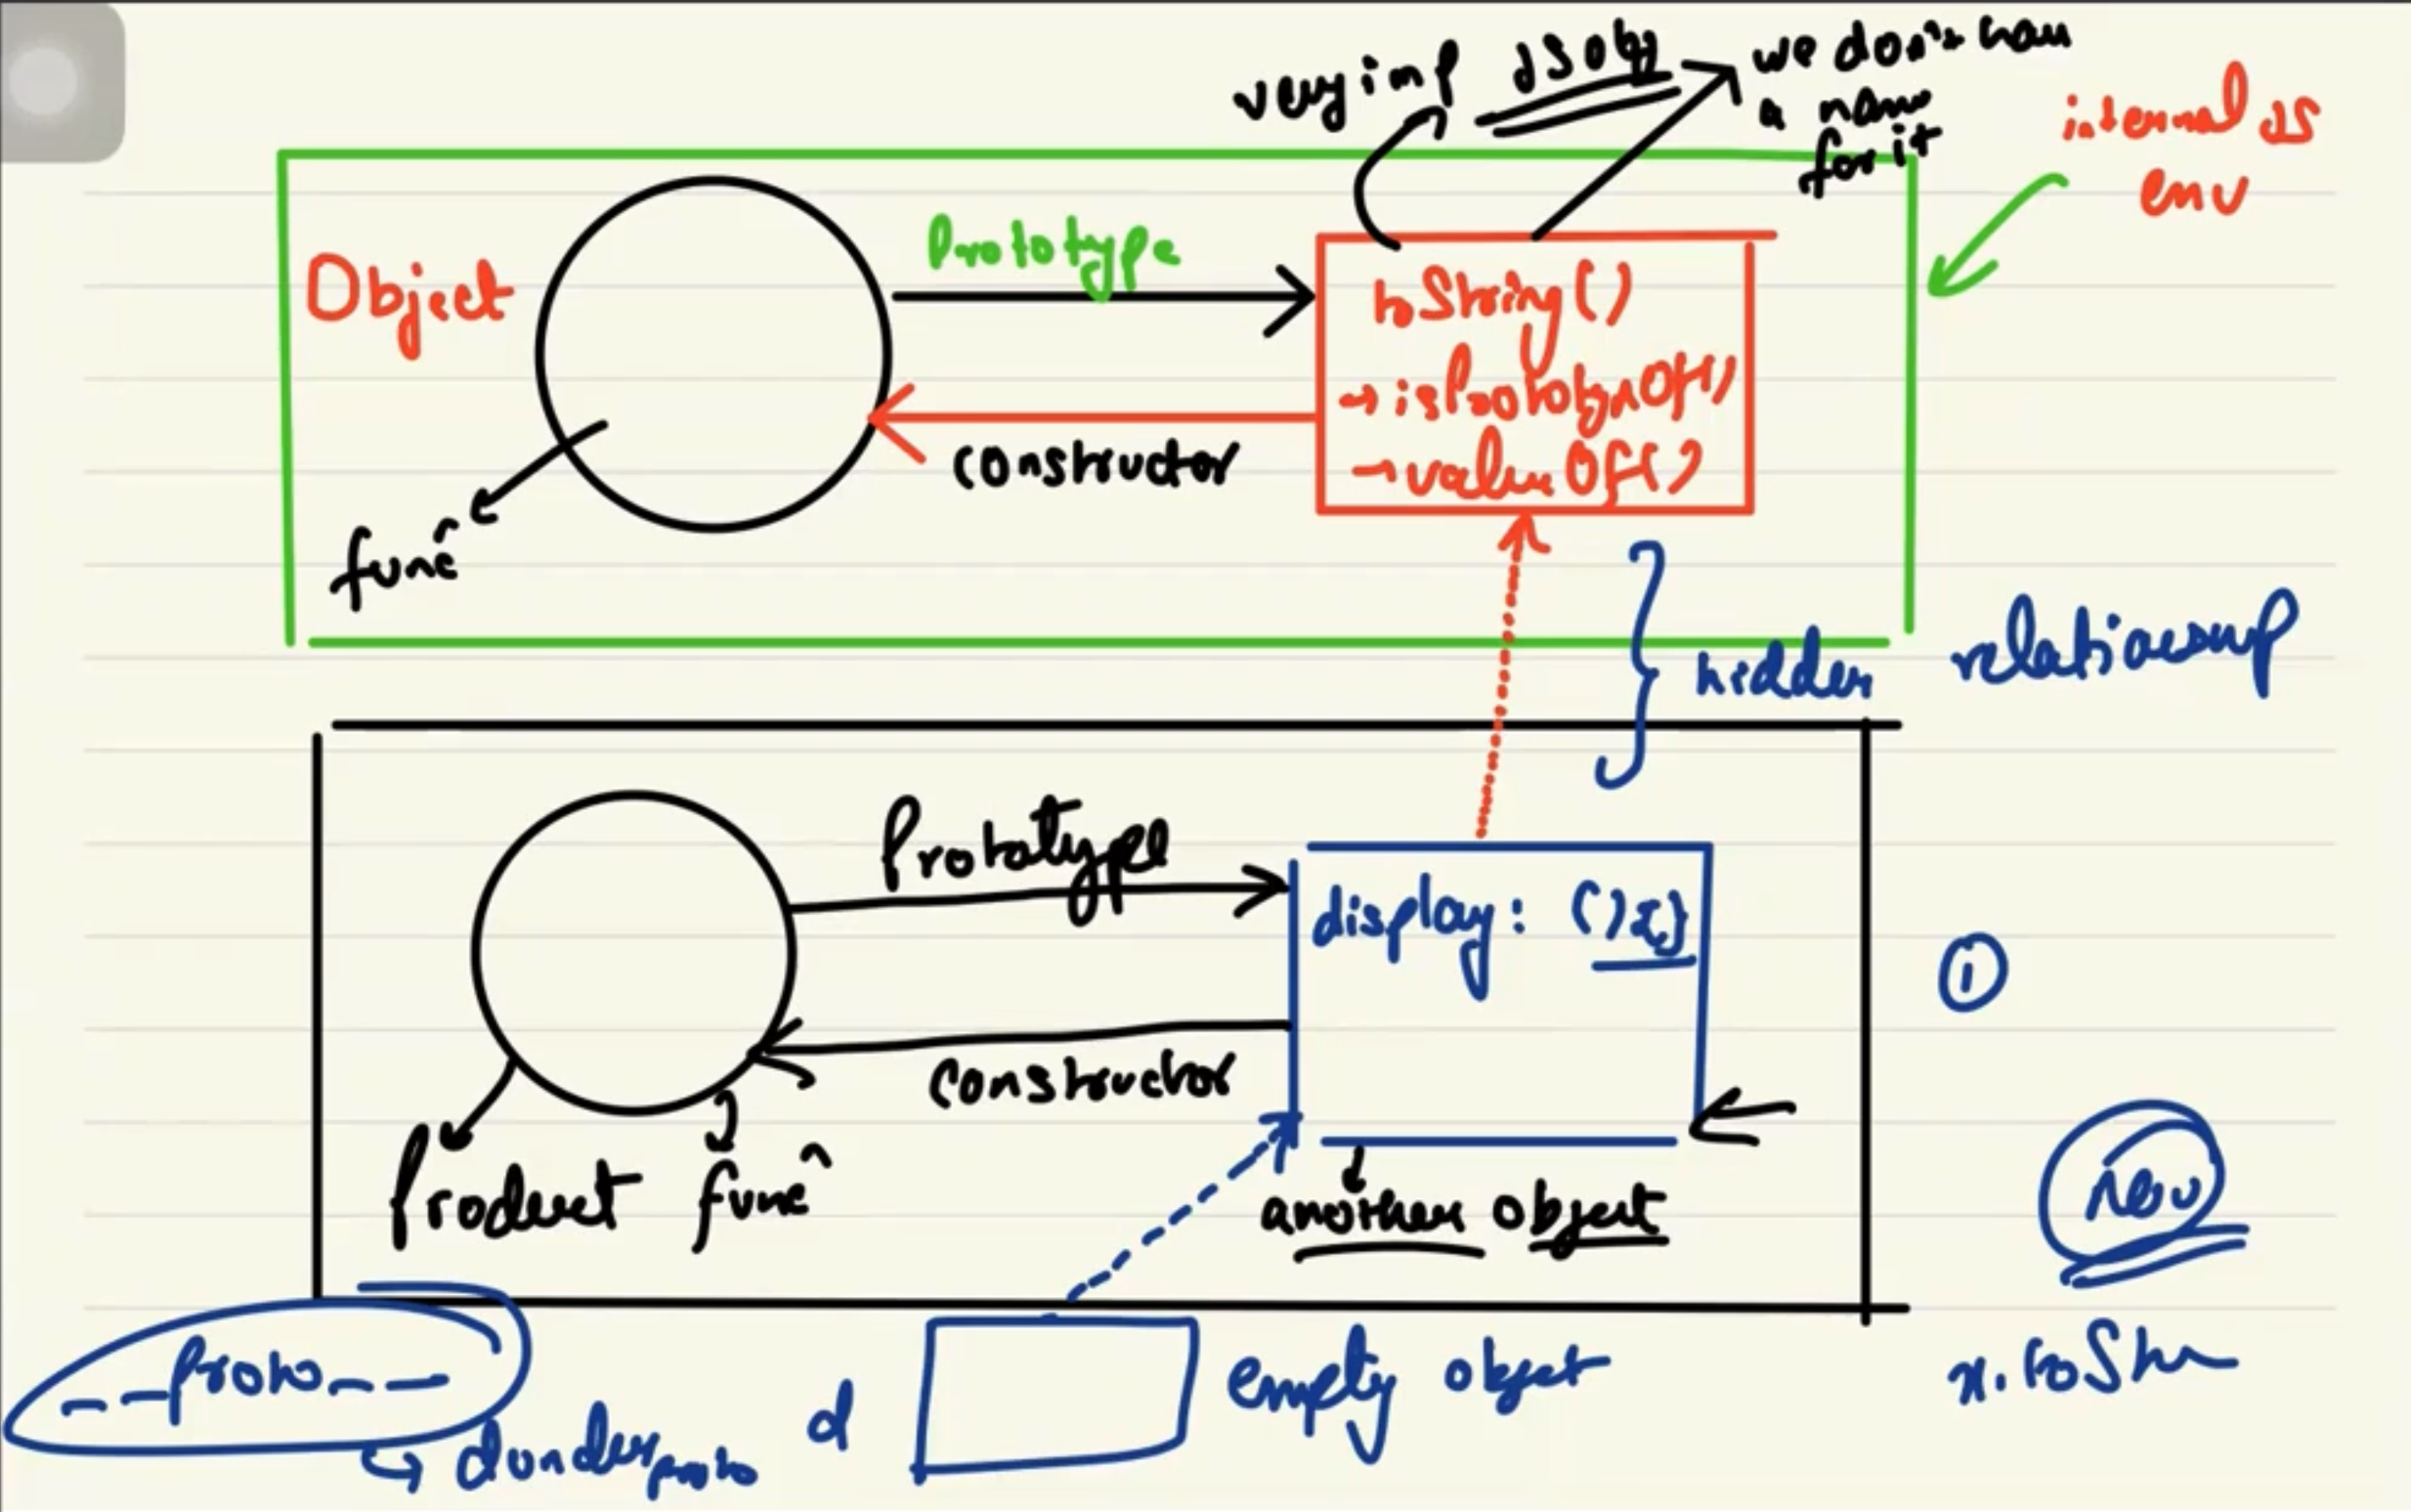 very imp JS obj
we don't have
a name
for it
internal JS
env
Object
Prototype
toString()
→ isPrototypeOf()
→ valueOf()
constructor
func^n
hidden relationship
Prototype
display: (){}
constructor
①
Product func^n
another object
new
__proto__
dunder proto
empty object